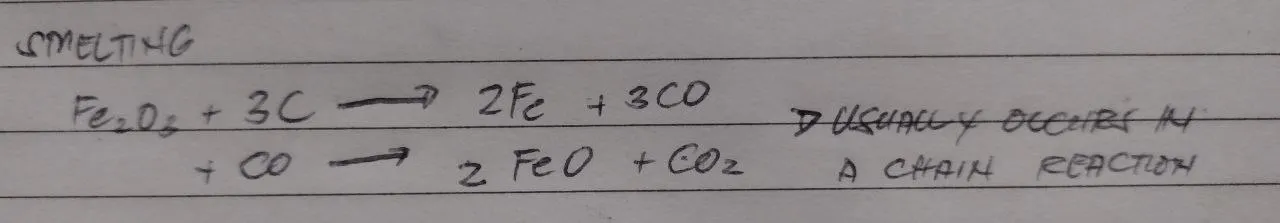 SMELTING
Fe₂O₃ + 3C ⟶ 2Fe + 3CO
→ USUALLY OCCURS IN
+ CO ⟶ 2 FeO + CO₂
A CHAIN REACTION